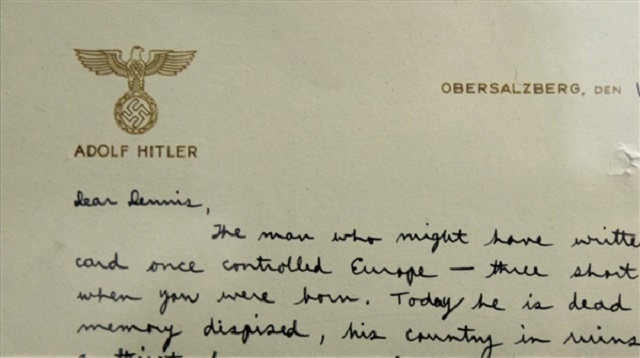 ADOLF HITLER
OBERSALZBERG, DEN
Dear Dennis,
The man who might have writte
card once controlled Europe — three short
when you were born. Today he is dead
memory dispised, his country in ruins